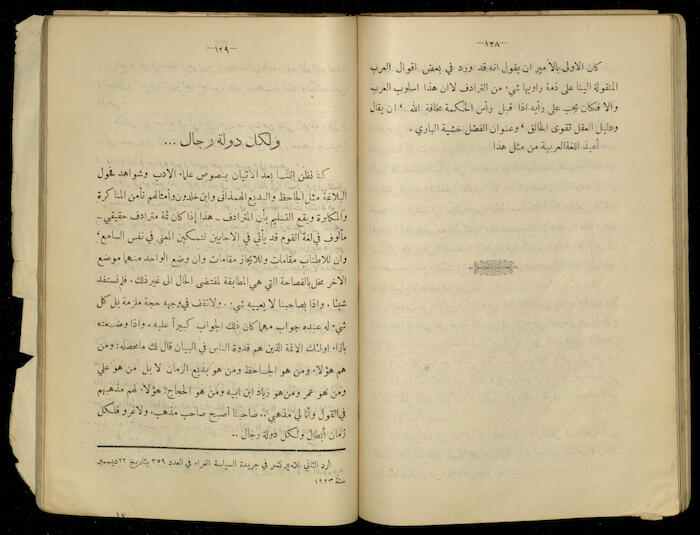 —١٢٨—
كان الاولى بالأمير ان يقول انه قد ورد في بعض اقوال العرب
المنقولة الينا على ذمة راويها شيء من الترادف لاان هذا اسلوب العرب
والا فكان يجب على رأيه اذا قبل رأس الحكمة مخافة الله ، ان يقال
ودليل العقل تقوى الخالق ، وعنوان الفضل خشية الباري .
أعيذ اللغة العربية من مثل هذا .
—١٢٩—
ولكل دولة رجال ...
كنا نظن اننا بعد الاتيان بنصوص علماء الادب وشواهد فحول
البلاغة مثل الجاحظ والبديع الهمذاني وابن خلدون وأمثالهم نأمن المناكرة
والمكابرة ويقع التسليم بأن المترادف ـ هذا إذا كان ثمة مترادف حقيقي ـ
مألوف في لغة القوم قد يأتي في الاحايين لتمكين المعنى في نفس السامع ،
وان للاطناب مقامات وللايجاز مقامات وان وضع الواحد منهما موضع
الآخر مخل بالفصاحة التي هي المطابقة لمقتضى الحال الى غير ذلك . فإنستفد
شيئا . واذا بصاحبنا لا يعييه شيء . ولا تقف في وجهه حجة ملزمة بل كل
شيء له عنده جواب مهما كان ذلك الجواب كبيراً عليه . واذا وضعته
بازاء اولئك الائمة الذين هم قدوة الناس في البيان قال لك ما محصله : ومن
هم هؤلاء ومن هو الجاحظ ومن هو بديع الزمان لا بل من هو علي
ومن هو عمر ومن هو زياد ابن ابيه ومن هو الحجاج . هؤلاء لهم مذهبهم
في القول وأنا لي مذهبي .. صاحبنا أصبح صاحب مذهب . ولا غرو فلكل
زمان أبطال ولكل دولة رجال ..
الرد الثاني للامير نشر في جريدة السياسة الغراء في العدد ٣٥٩ بتاريخ ٢٢ ديسمبر
سنة ١٩٢٣
١٧